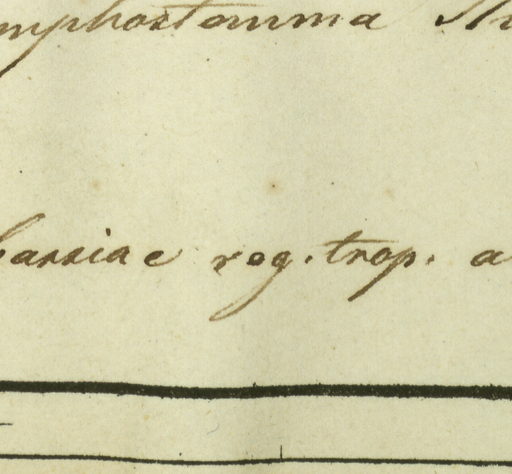 mphostemma
bassiae reg. trop. a